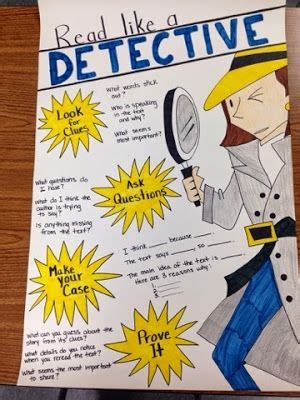 Read like a
DETECTIVE
Look
for
Clues
What words stick
out?
Who is speaking
in the text
and why?
What seems
most important?
Ask
Questions
What questions do
I have?
What do I think the
author is trying
to say?
Is anything missing
from the text?
Make
your
Case
I think ___ because ___.
The text says ___, so ___.
The main idea of the text is ___.
Here are 3 reasons why:
1.
2.
3.
Prove
It
What can you guess about the
story from its' clues?
What details do you notice
when you reread the text?
What seems the most important
to share?